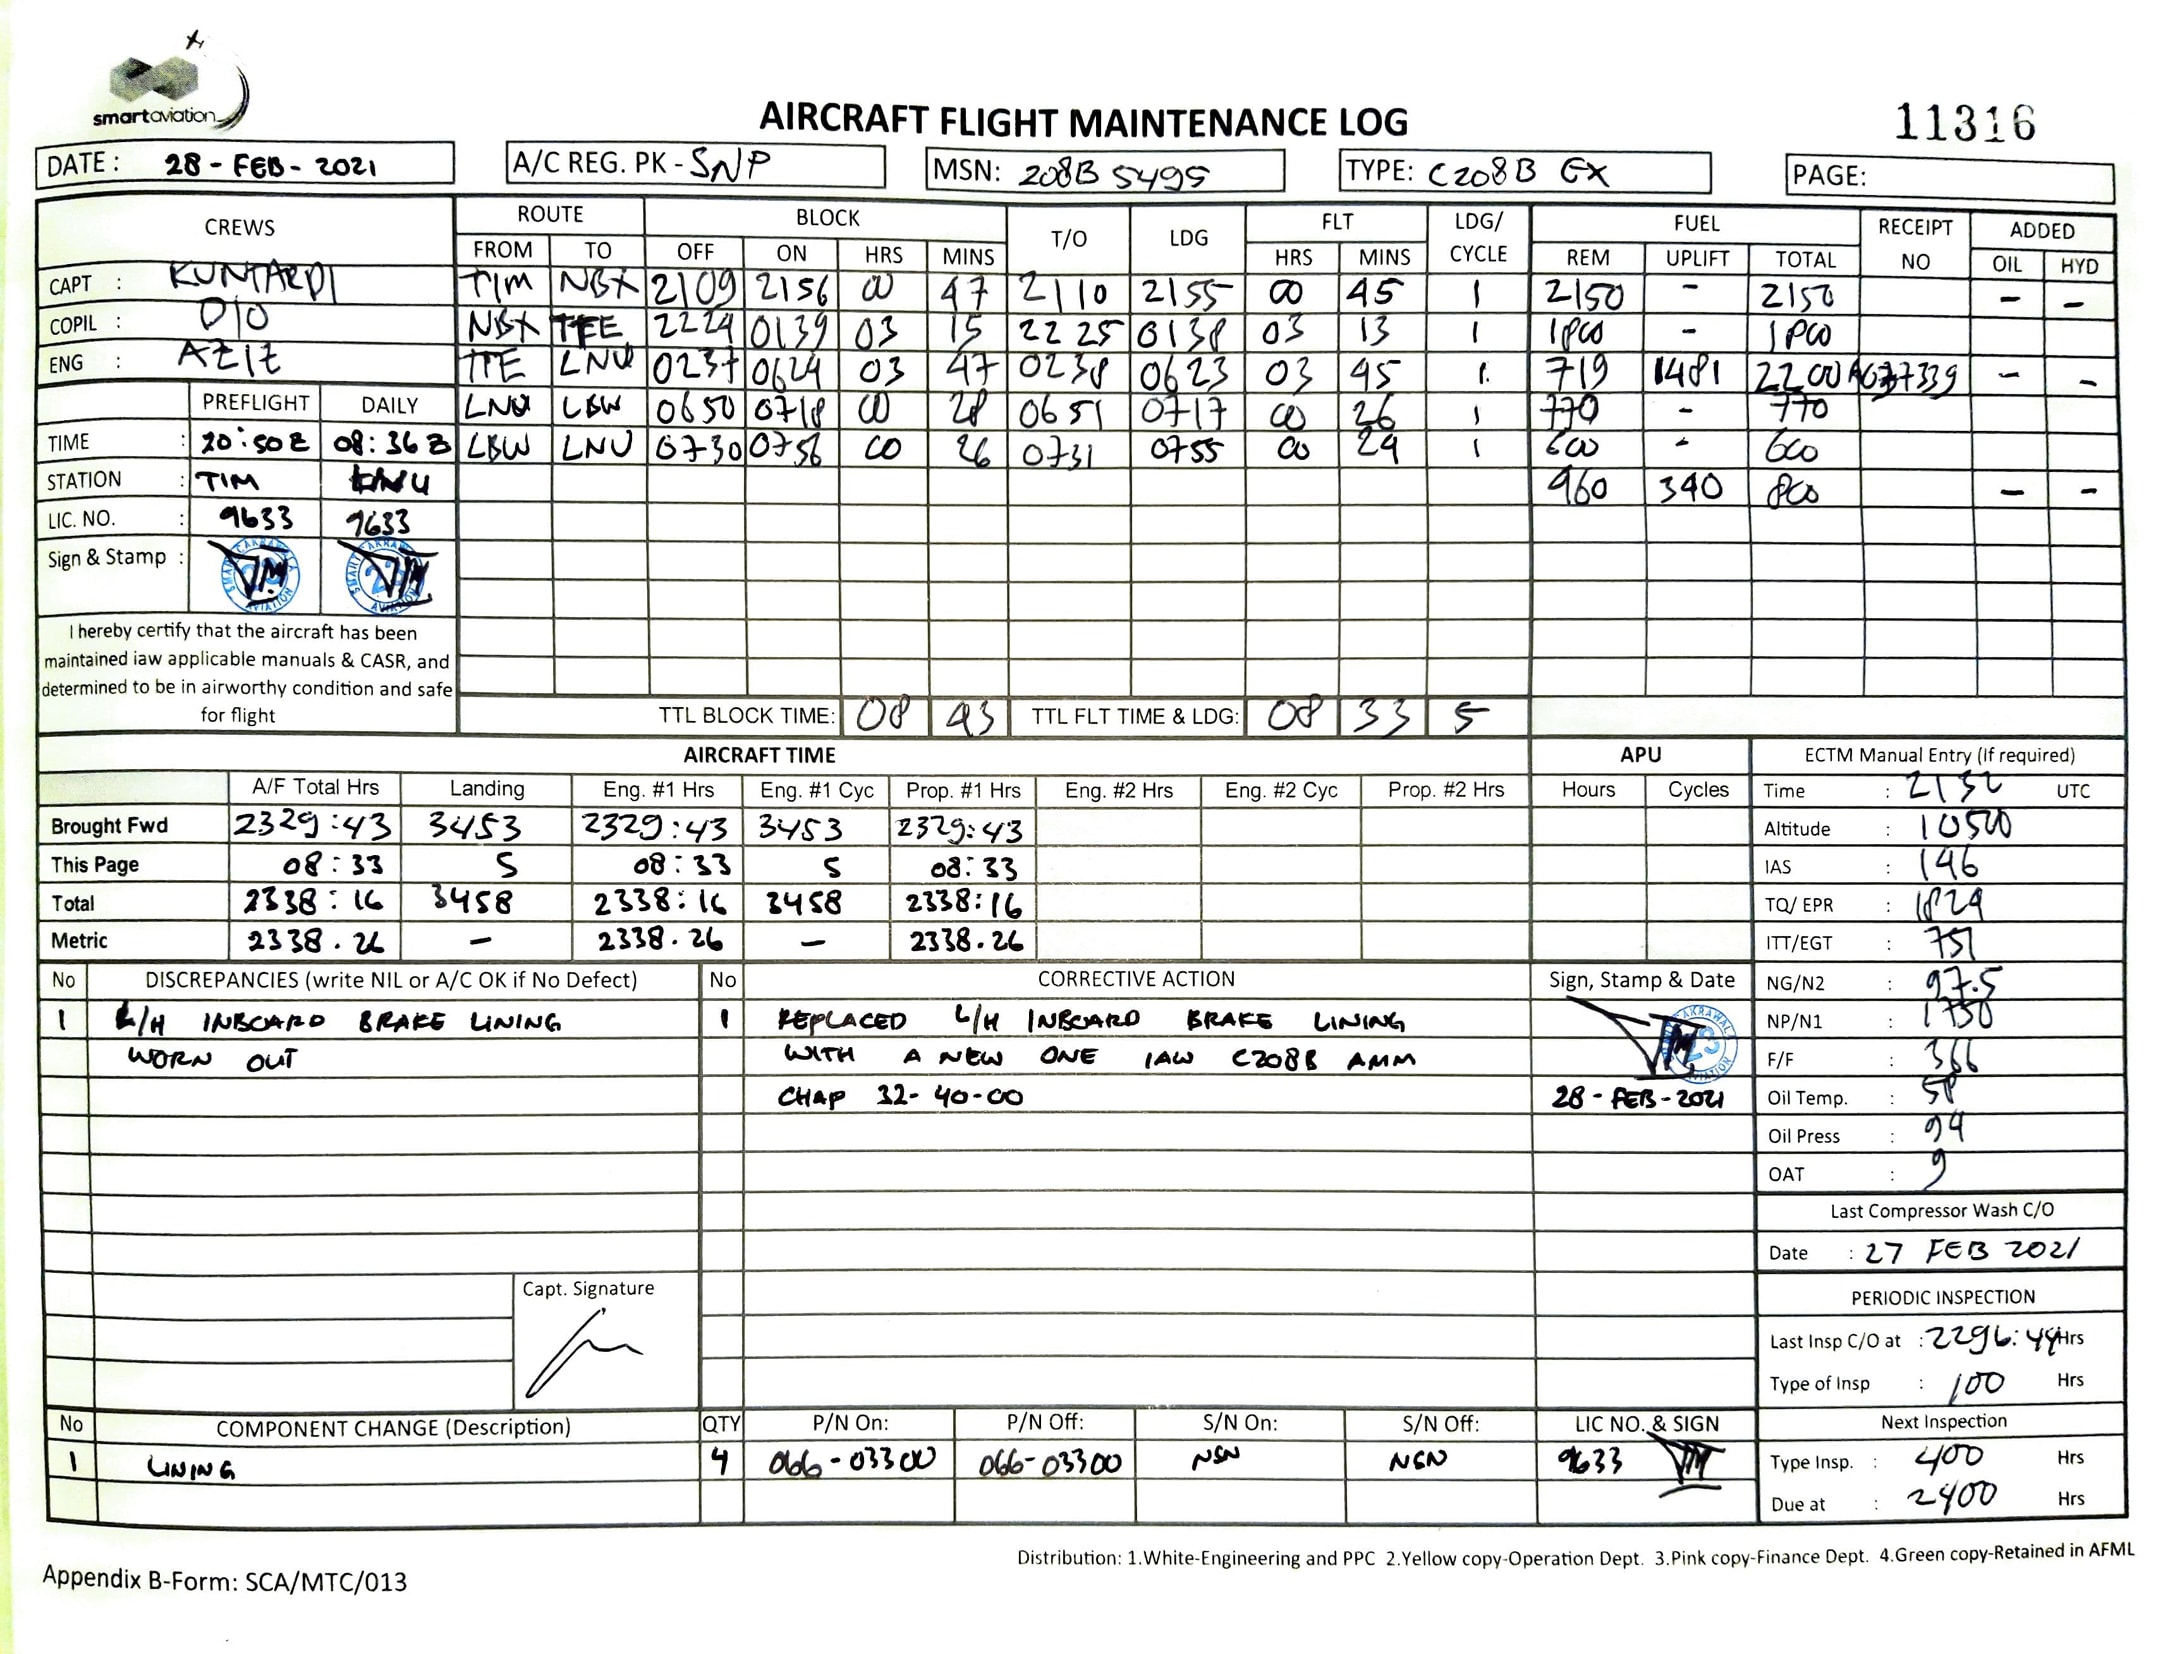 smartaviation
AIRCRAFT FLIGHT MAINTENANCE LOG
11316
DATE: 28 - FEB - 2021 A/C REG. PK - SNP MSN: 208B 5495 TYPE: C208B EX PAGE:
CREWS ROUTE BLOCK T/O LDG FLT LDG/ CYCLE FUEL RECEIPT NO ADDED
FROM TO OFF ON HRS MINS HRS MINS REM UPLIFT TOTAL OIL HYD
CAPT : KUNTARDI TIM NBX 2109 2156 00 47 2110 2155 00 45 1 2150 - 2150 - -
COPIL : DIO NBX TEE 2224 0139 03 15 2225 0138 03 13 1 1800 - 1800
ENG : AZIZ TTE LNU 0237 0624 03 47 0238 0623 03 45 1 719 1481 2200 - -
PREFLIGHT DAILY LNU LBW 0650 0718 00 28 0651 0717 00 26 1 770 - 770
TIME : 20:50Z 08:36Z LBW LNU 0730 0756 00 26 0731 0755 00 24 1 600 - 600
STATION : TIM LNU 460 340 800 - -
LIC. NO. : 9633 9633
Sign & Stamp :
I hereby certify that the aircraft has been
maintained iaw applicable manuals & CASR, and
determined to be in airworthy condition and safe
for flight
TTL BLOCK TIME: 08 43 TTL FLT TIME & LDG: 08 33 5
AIRCRAFT TIME APU ECTM Manual Entry (if required)
A/F Total Hrs Landing Eng. #1 Hrs Eng. #1 Cyc Prop. #1 Hrs Eng. #2 Hrs Eng. #2 Cyc Prop. #2 Hrs Hours Cycles Time : 2132 UTC
Brought Fwd 2329:43 3453 2329:43 3453 2329:43 Altitude : 10500
This Page 08:33 5 08:33 5 08:33 IAS : 146
Total 2338:16 3458 2338:16 3458 2338:16 TQ/ EPR : 1824
Metric 2338.26 - 2338.26 - 2338.26 ITT/EGT : 751
No DISCREPANCIES (write NIL or A/C OK if No Defect) No CORRECTIVE ACTION Sign, Stamp & Date NG/N2 : 97.5
1 L/H INBOARD BRAKE LINING 1 REPLACED L/H INBOARD BRAKE LINING NP/N1 : 1750
WORN OUT WITH A NEW ONE IAW C208B AMM F/F : 366
CHAP 32-40-00 28-FEB-2021 Oil Temp. : 58
Oil Press : 94
OAT : 9
Last Compressor Wash C/O
Date : 27 FEB 2021
Capt. Signature
PERIODIC INSPECTION
Last Insp C/O at : 2296:44 Hrs
Type of Insp : 100 Hrs
No COMPONENT CHANGE (Description) QTY P/N On: P/N Off: S/N On: S/N Off: LIC NO. & SIGN Next Inspection
1 LINING 4 066-03300 066-03300 NSN NSN 9633 Type Insp. : 400 Hrs
Due at : 2400 Hrs
Distribution: 1.White-Engineering and PPC 2.Yellow copy-Operation Dept. 3.Pink copy-Finance Dept. 4.Green copy-Retained in AFML
Appendix B-Form: SCA/MTC/013